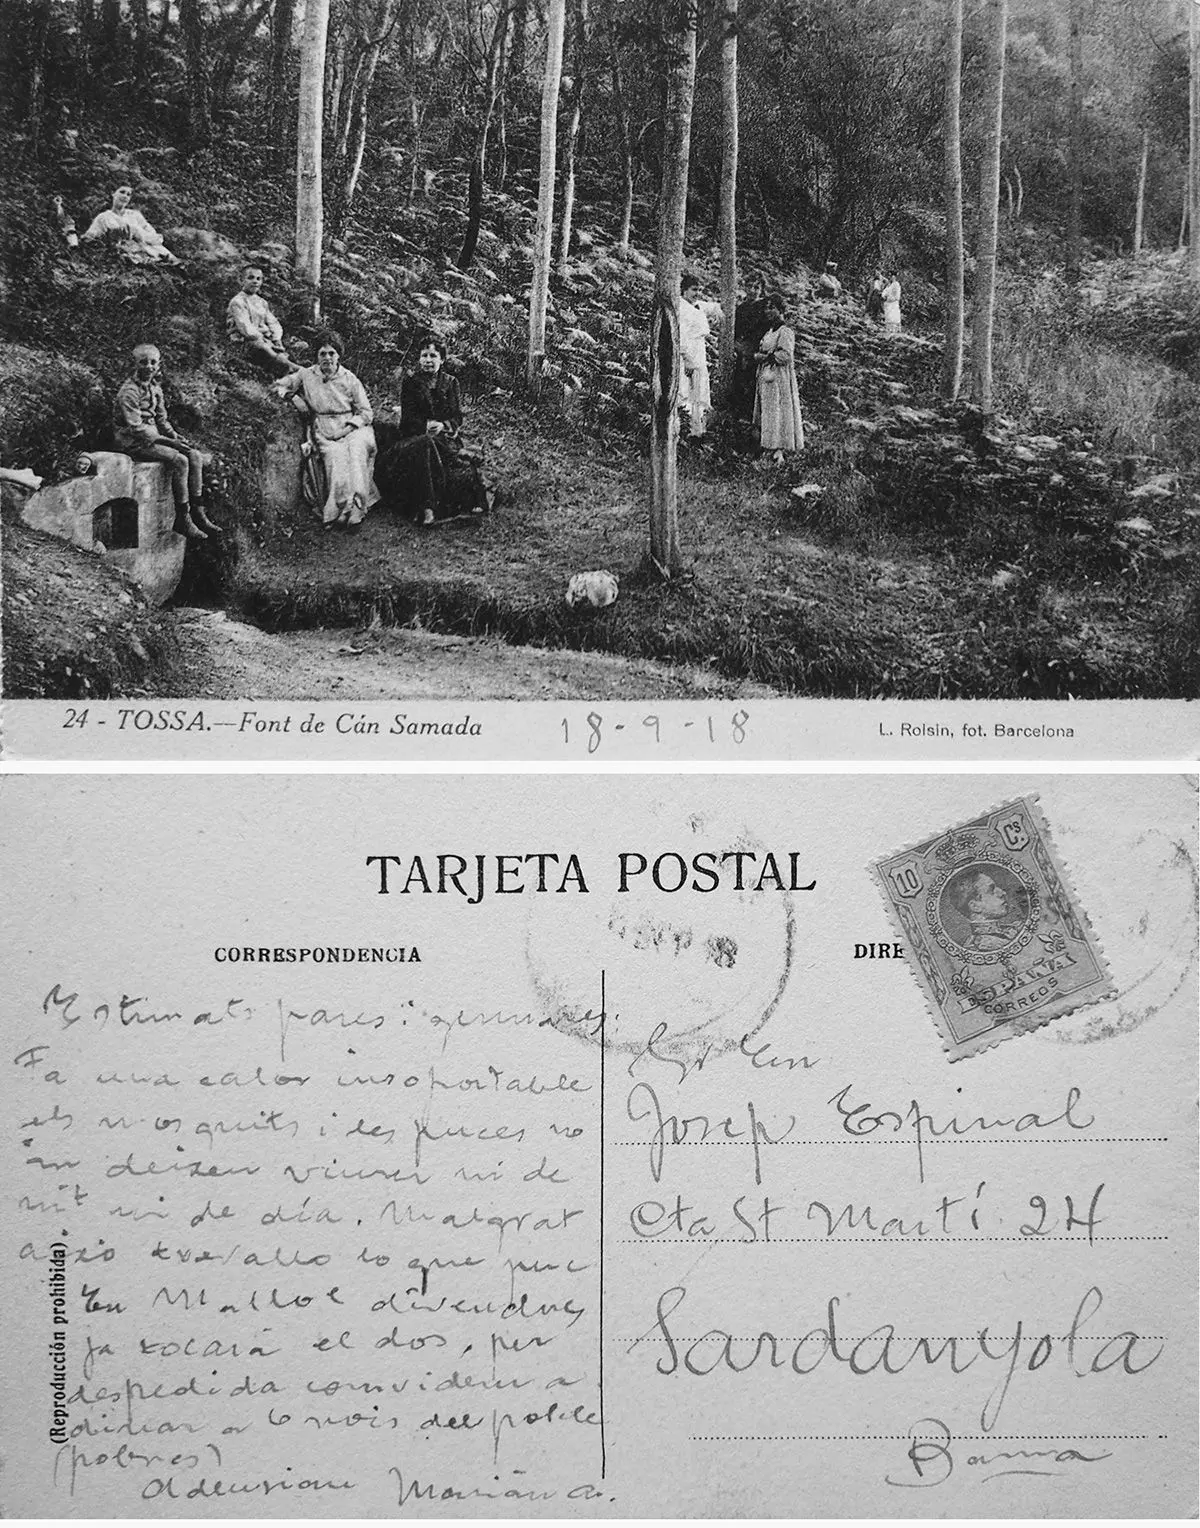 24 - TOSSA.—Font de Cán Samada
18-9-18
L. Roisin, fot. Barcelona
TARJETA POSTAL
CORRESPONDENCIA
DIRE
10
Cs.
ESPAÑA
CORREOS
Estimats pares i germanes:
Fa una calor insoportable
els mosquits i les puces no
ens deixen viurer ni de
nit ni de día. Malgrat
aixó trevallo lo que puc
En Mallol divendres
ja tocará el dos, per
despedida convidem a
dinar a 6 nois del poble
(pobres)
Adeusiau
(Reproducción prohibida)
Sr En
Josep Espinal
Cta St Martí 24
Sardanyola
Barna